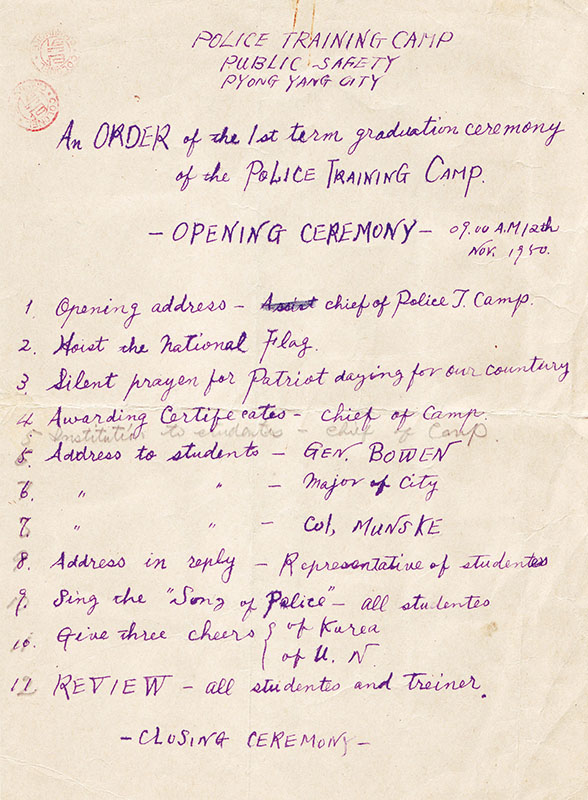 POLICE TRAINING CAMP
PUBLIC SAFETY
PYONG YANG CITY
An ORDER of the 1st term graduation ceremony
of the POLICE TRAINING CAMP.
- OPENING CEREMONY - 09.00 A.M 12th
Nov. 1950.
1. Opening address - Assist chief of Police T. Camp.
2. Hoist the National Flag.
3. Silent prayen for Patriot daying for our countury
4. Awarding Certifecates - chief of Camp.
5 Institution to students - chief of Camp
5. Address to students - GEN. BOWEN
6. " " - Major of City
7. " " - Col, MUNSKE
8. Address in reply - Representative of studentes
9. Sing the "Song of Police" - all studentes
10. Give three cheers { of Kurea
of U. N.
11 REVIEW - all studentes and treiner.
- CLOSING CEREMONY -